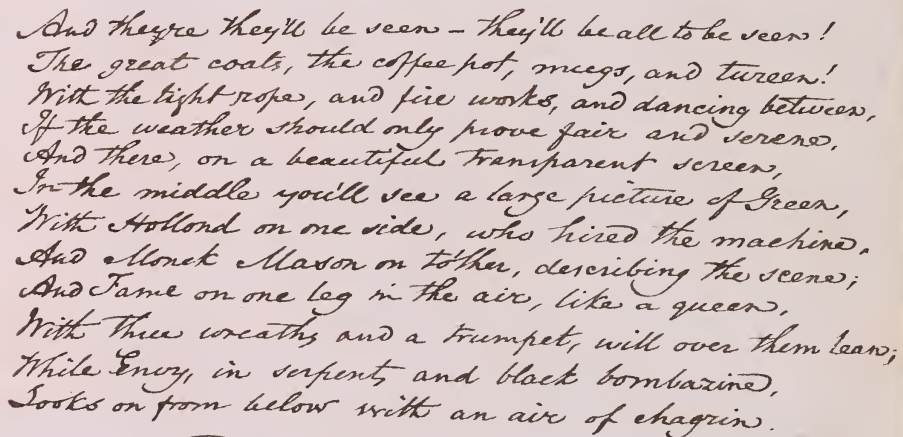 And they're they'll be seen – they'll be all to be seen!
The great coats, the coffee pot, mugs, and tureen!
With the tight rope, and fire works, and dancing between,
If the weather should only prove fair and serene,
And there, on a beautiful transparent screen,
In the middle you'll see a large picture of Green,
With Hollond on one side, who hired the machine,
And Monck Mason on tother, describing the scene;
And Fame on one leg in the air, like a queen,
With three wreaths and a trumpet, will over them lean;
While Envy, in serpents and black bombazine,
Looks on from below with an air of chagrin.